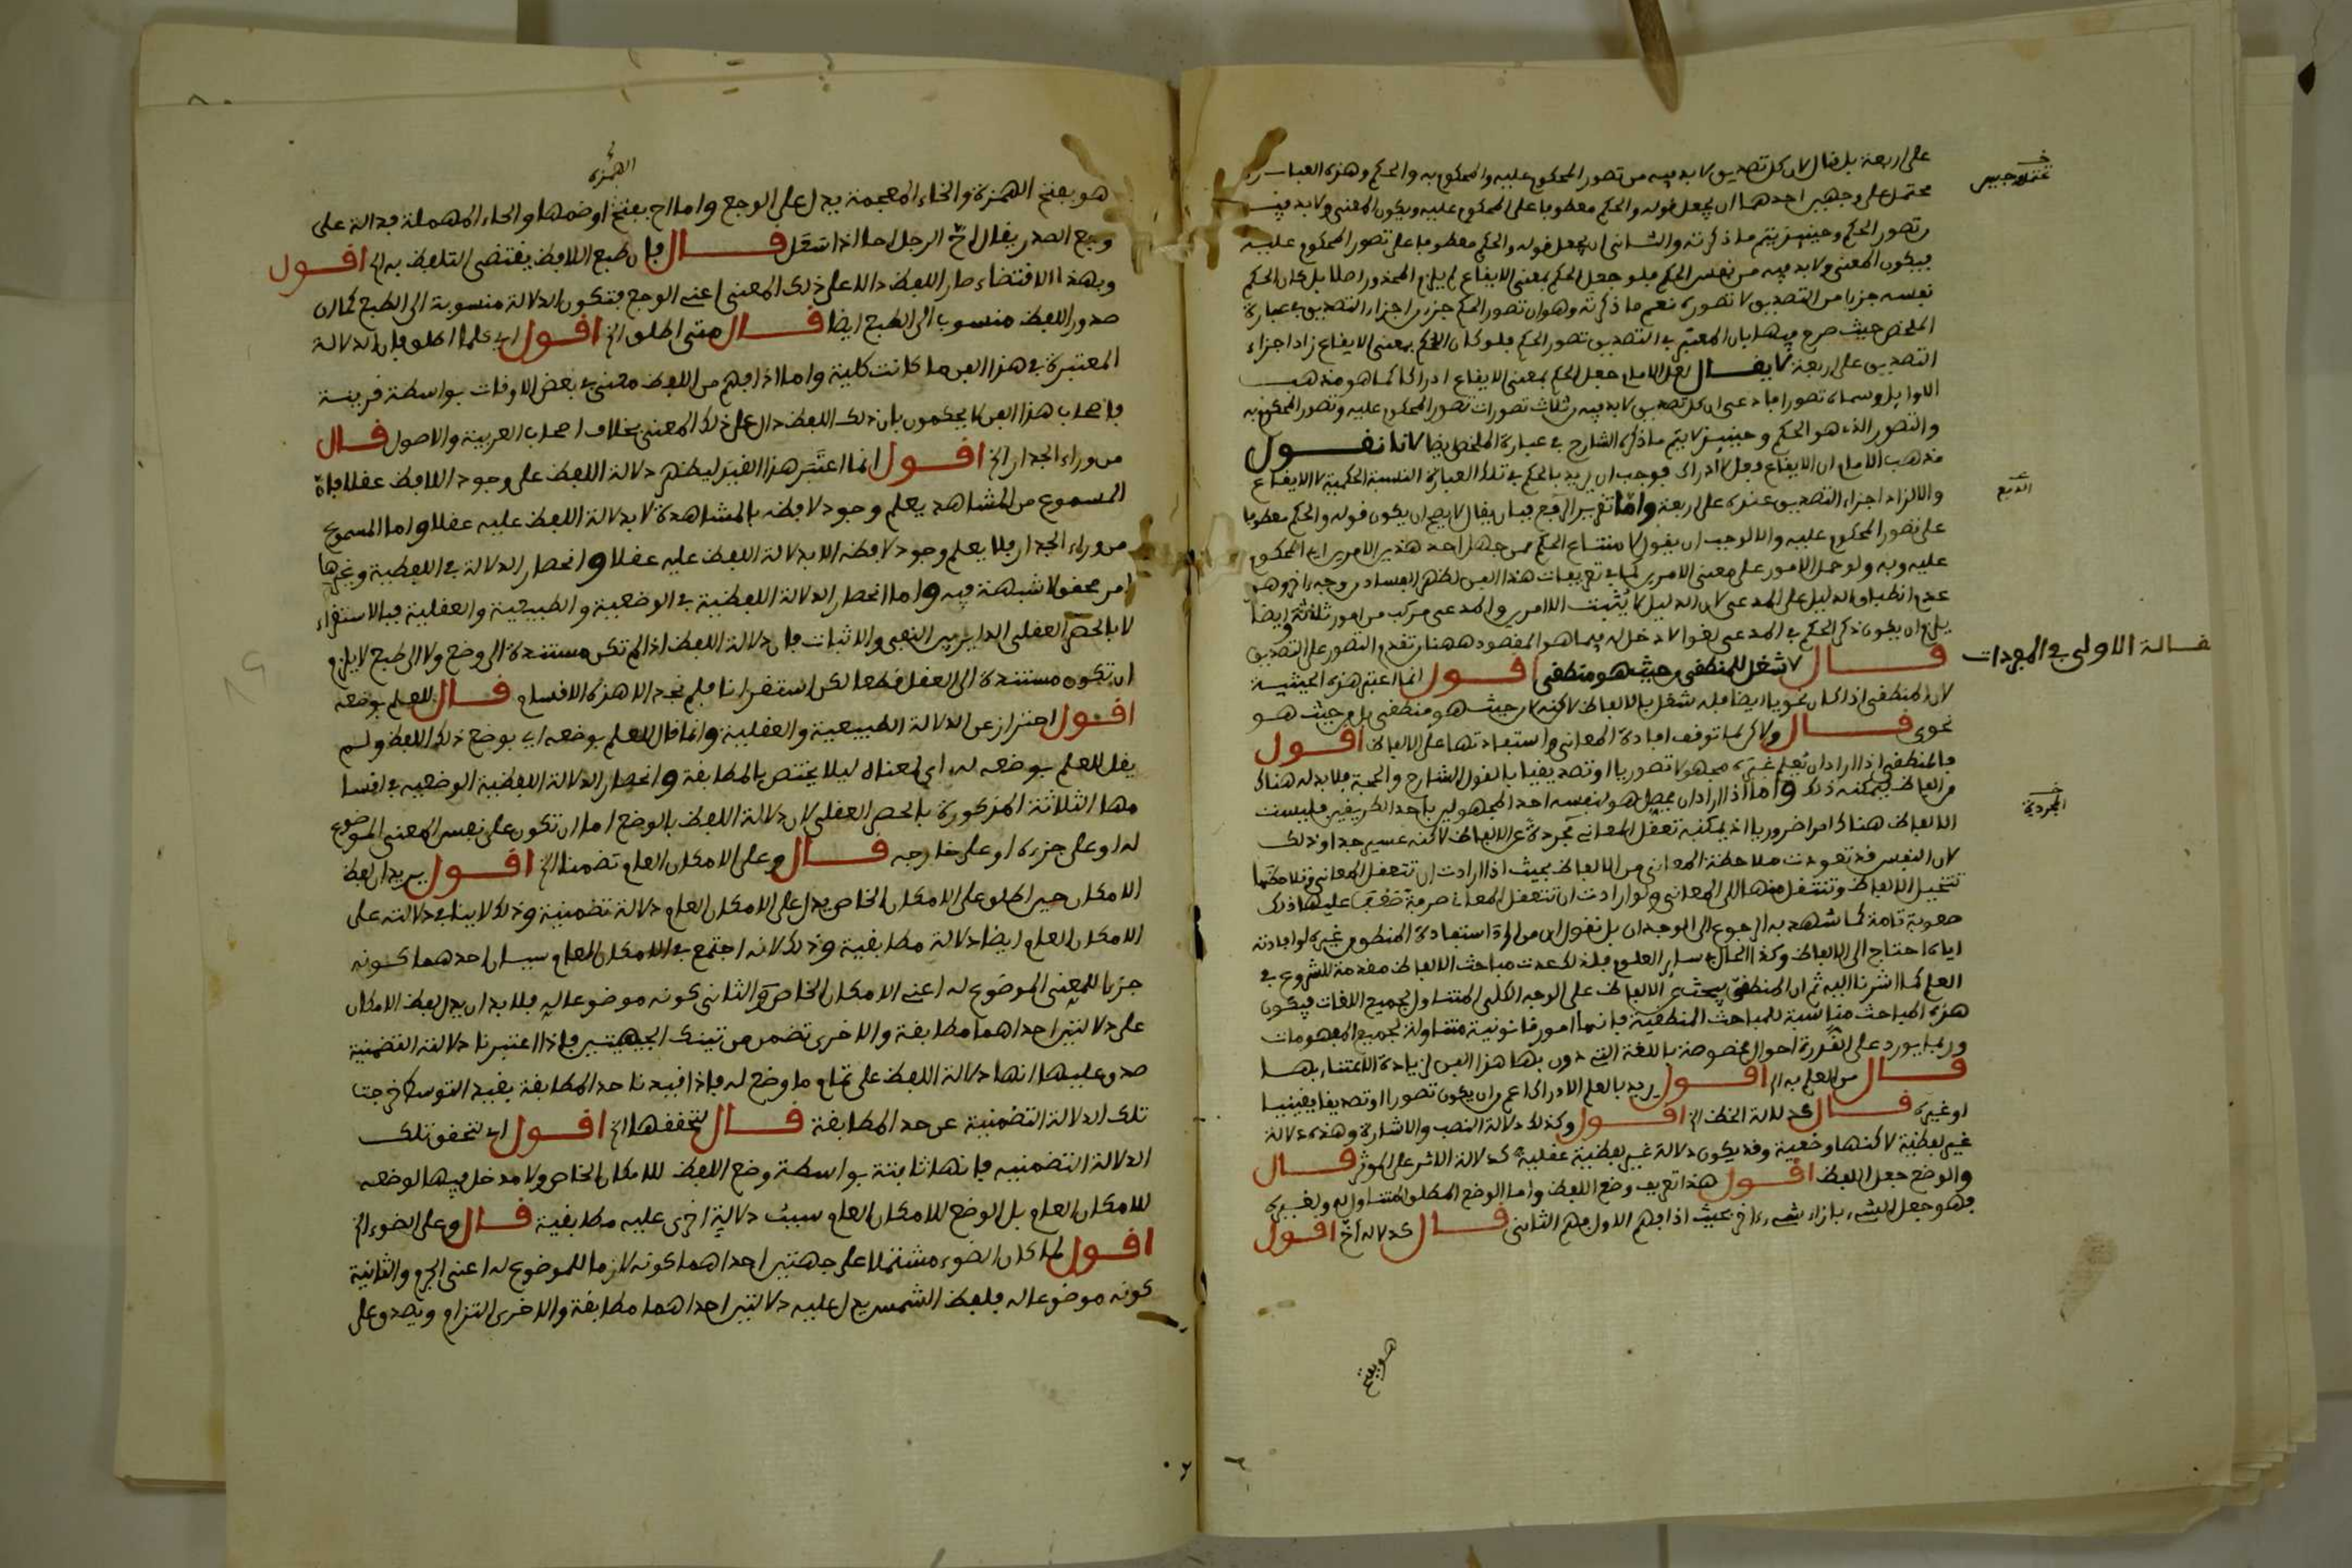 على اربعة بل نقال لان كل تصديق لا بد فيه من تصور المحكوم عليه والمحكوم به والحكم وهذه العبارة
محتمل على وجهين احدهما ان يجعل قوله والحكم معطوفا على المحكوم عليه ويكون المعنى ولا بد فيه
من تصور الحكم وحينئذ يتم ما ذكرته والثانى ان يجعل قوله والحكم معطوفا على تصور المحكوم عليه
فيكون المعنى ولا بد فيه من نفس الحكم فلو جعل الحكم بمعنى الايقاع لم يلزم المحذور اصلا بل كان الحكم
نفسه جزءا من التصديق لا تصوره نعم ما ذكرته وهو ان تصور الحكم جزء من اجزاء التصديق في عبارة
الملخص حيث صرح فيها بان المعتبر في التصديق تصور الحكم فلو كان الحكم بمعنى الايقاع زاد اجزاء
التصديق على اربعة لا يقال لعل الامام جعل الحكم بمعنى الايقاع ادراكا كما هو مذهب
الاوايل وسماه تصورا فادعى ان كل تصديق لا بد فيه من ثلاث تصورات تصور المحكوم عليه وتصور المحكوم به
والتصور الذى هو الحكم وحينئذ لا يتم ما ذكره الشارح في عبارة الملخص ايضا لانا نقول
مذهب الامام ان الايقاع فعل لا ادراك فوجب ان يريد بالحكم في تلك العبارة النسبة الحكمية لا الايقاع
والا لزاد اجزاء التصديق عنده على اربعة واما تقرير الدفع فبان يقال لا يصح ان يكون قوله والحكم معطوفا
على تصور المحكوم عليه والا لوجب ان يقول لامتناع الحكم ممن جهل احد هذين الامرين اى المحكوم
عليه وبه ولو حمل الامور على معنى الامرين كما في تعريفات هذا الفن لظهر الفساد من وجه اخر وهو
عدم انطباق الدليل على المدعى لان الدليل لا يثبت الا امرين والمدعى مركب من امور ثلاثة وايضا
يلزم ان يكون ذكر الحكم في المدعى لغوا لا دخل له فيما هو المقصود ههنا من تقدم التصور على التصديق
قال لا شغل للمنطقى من حيث هو منطقى اقول انما اعتبر هذه الحيثية
لان المنطقى اذا كان نحويا ايضا فله شغل بالالفاظ لاكنه لا من حيث هو منطقى بل من حيث هو
نحوى قال ولاكن لما توقف افادة المعانى واستفادتها على الالفاظ اقول
فالمنطقى اذا اراد ان يعلم غيره مجهولا تصوريا او تصديقيا بالقول الشارح والحجة فلا بد له هناك
من الفاظ ليمكنه ذلك واما اذا اراد ان يحصل هو لنفسه احد المجهولين باحد الطريقين فليست
الالفاظ هناك امرا ضروريا اذ يمكنه تعقل المعانى مجردة عن الالفاظ لاكنه عسير جدا وذلك
لان النفس قد تعودت ملاحظة المعانى من الالفاظ بحيث اذا ارادت ان تتعقل المعانى وتلاحظها
تتخيل الالفاظ وتنتقل منها الى المعانى ولو ارادت ان تتعقل المعانى صرفة صعب عليها ذلك
صعوبة تامة كما شهد به الرجوع الى الوجدان بل نقول ان من اراد استفادة المنطق من غيره او افادته
اياه احتاج الى الالفاظ وكذا الحال في ساير العلوم فلذلك عدت مباحث الالفاظ مقدمة للشروع في
العلم كما اشرنا اليه ثم ان المنطقى يبحث عن الالفاظ على الوجه الكلى المتناول لجميع اللغات فيكون
هذه المباحث مناسبة للمباحث المنطقية فانها امور قانونية متناولة لجميع المفهومات
وربما يورد على الندرة احوال مخصوصة باللغة التى دون بها هذا الفن لزيادة الاعتناء بها
قال من العلم به الخ اقول يريد بالعلم الادراك اعم من ان يكون تصورا او تصديقا يقينيا
او غيره قال كدلالة الخط الخ اقول وكذلك دلالة النصب والاشارة وهذه دلالة
غير لفظية لاكنها وضعية وقد يكون دلالة غير لفظية عقلية كدلالة الاثر على الموثر قال
والوضع جعل اللفظ اقول هذا تعريف وضع اللفظ واما الوضع المطلق المتناول له ولغيره
فهو جعل الشىء بازاء شىء اخر بحيث اذا فهم الاول فهم الثانى قال كدلالة اخ اقول
هو بفتح
الدفع
المقالة الاولى في المفردات
المجردة
الهمزة
هو بفتح الهمزة والخاء المعجمة يدل على الوجع واما اح بفتح او ضمها والحاء المهملة فدالة على
وجع الصدر يقال اح الرجل احا اذا سعل قال فان طبع اللافظ يقتضى التلفظ به الخ اقول
وبهذا الاقتضاء صار اللفظ دالا على ذلك المعنى اعنى الوجع فتكون الدلالة منسوبة الى الطبع كما ان
صدور اللفظ منسوب الى الطبع ايضا قال متى اطلق الخ اقول اى كلما اطلق فان الدلالة
المعتبرة في هذا الفن ما كانت كلية واما اذا فهم من اللفظ معنى في بعض الاوقات بواسطة قرينة
فاصحاب هذا الفن لا يحكمون بان ذلك اللفظ دال على ذلك المعنى بخلاف اصحاب العربية والاصول قال
من وراء الجدار الخ اقول انما اعتبر هذا القيد ليظهر دلالة اللفظ على وجود اللافظ عقلا فان
المسموع من المشاهد يعلم وجود لافظه بالمشاهدة لا بدلالة اللفظ عليه عقلا واما المسموع
من وراء الجدار فلا يعلم وجود لافظه الا بدلالة اللفظ عليه عقلا وانحصار الدلالة في اللفظية وغيرها
امر محقق لا شبهة فيه واما انحصار الدلالة اللفظية في الوضعية والطبيعية والعقلية فبالاستقراء
لا بالحصر العقلى الداير بين النفى والاثبات فان دلالة اللفظ اذا لم تكن مستندة الى وضع ولا الى طبع لا يلزم
ان تكون مستندة الى العقل قطعا لكن استقرانا فلم نجد الا هذه الاقسام قال للعلم بوضعه
اقول احتراز عن الدلالة الطبيعية والعقلية وانما قال للعلم بوضعه اى بوضع ذلك اللفظ ولم
يقل للعلم بوضعه له اى لمعناه ليلا يختص بالمطابقة وانحصار الدلالة اللفظية الوضعيه في اقسا
مها الثلاثة المذكورة بالحصر العقلى لان دلالة اللفظ بالوضع اما ان تكون على نفس المعنى الموضوع
له او على جزءه او على خارجه قال وعلى الامكان العام تضمنا الخ اقول يريد ان لفظ
الامكان حين اطلق على الامكان الخاص يدل على الامكان العام دلالة تضمنية وذلك لا ينافي دلالته على
الامكان العام ايضا دلالة مطابقية وذلك لانه اجتمع في الامكان العام سببان احدهما كونه
جزءا للمعنى الموضوع له اعنى الامكان الخاص والثانى كونه موضوعا له فلا بد ان يدل لفظ الامكان
على دلالتين احداهما مطابقة والاخرى تضمن من تينك الجهتين فاذا اعتبرنا دلالته التضمنية
صدق عليها انها دلالة اللفظ على تمام ما وضع له فاذا قيدنا حد المطابقة بقيد التوسط خرجت
تلك الدلالة التضمنية عن حد المطابقة قال لتحققها الخ اقول اى لتحقق تلك
الدلالة التضمنيه فانها ثابتة بواسطة وضع اللفظ للامكان الخاص ولا مدخل فيها لوضعه
للامكان العام بل الوضع للامكان العام سبب دلالة اخرى عليه مطابقية قال وعلى الضوء الخ
اقول لما كان الضوء مشتملا على جهتين احداهما كونه لازما للموضوع له اعنى الجرم والثانية
كونه موضوعا له فلفظ الشمس يدل عليه دلالتين احداهما مطابقة والاخرى التزام ويصدق على